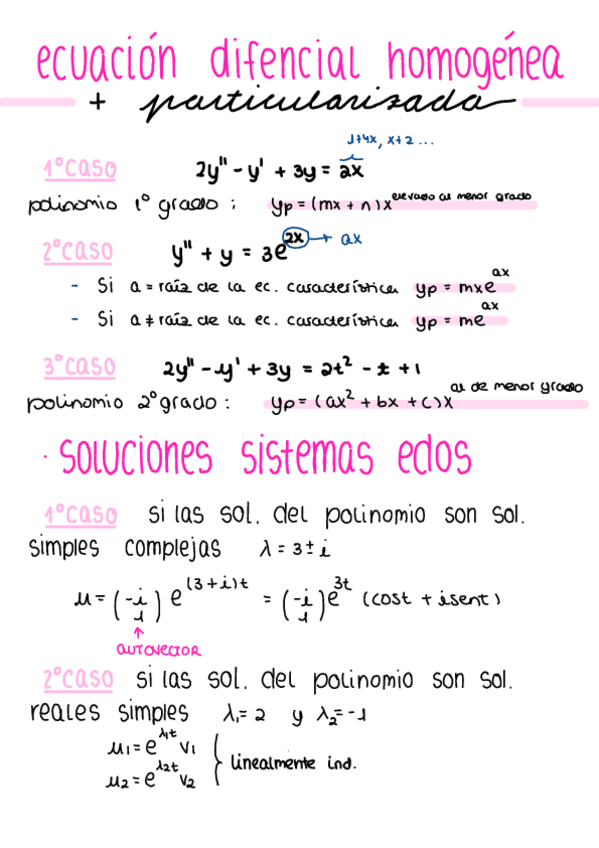 ecuación difencial homogénea
+ particularizada
1+4x, x+2 ...
1º caso 2y" - y' + 3y = 2x
polinomio 1º grado : yp = (mx + n) x^elevado al menor grado
2º caso y" + y = 3e^2x → ax
- Si a = raíz de la ec. característica yp = mxe^ax
- Si a ≠ raíz de la ec. característica yp = me^ax
3º caso 2y" - y' + 3y = 2t² - t + 1
polinomio 2º grado : yp = (ax² + bx + c) x^al de menor grado
· soluciones sistemas edos
1º caso si las sol. del polinomio son sol.
simples complejas λ = 3 ± i
u = (-i 1) e^(3+i)t = (-i 1) e^3t (cost + isent)
↑
autovector
2º caso si las sol. del polinomio son sol.
reales simples λ₁ = 2 y λ₂ = -1
u₁ = e^λ₁t v₁
u₂ = e^λ₂t v₂ } linealmente ind.